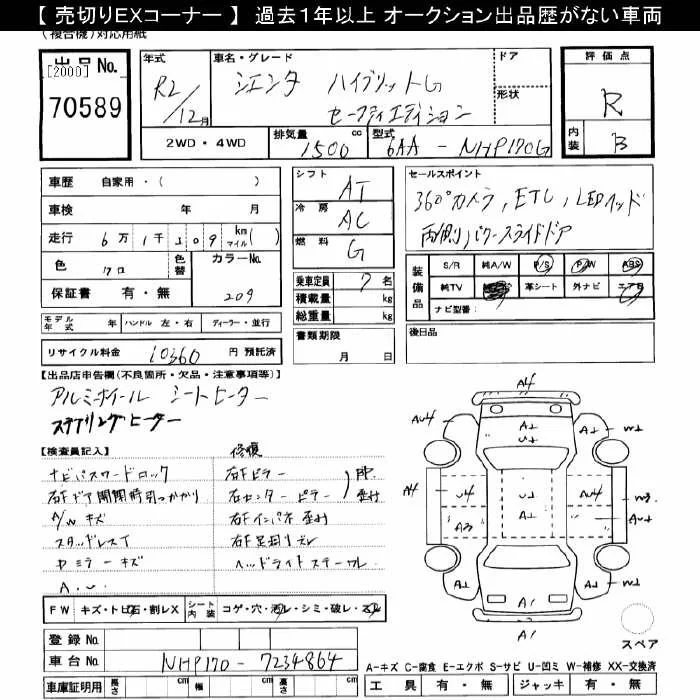 【 売切りEXコーナー 】 過去１年以上 オークション出品歴がない車両
(複合機)対応用紙
出品No.
[2000]
70589
年式
R2/12月
車名・グレード
シエンタ ハイブリットG
セーフティエディション
ドア
形状
評価点
R
内装
B
2WD・4WD
排気量
1500 cc
型式
6AA - NHP170G
車歴 自家用・( )
車検 年 月
走行 6万1千109 km マイル( )
色 クロ
色替
カラーNo.
209
保証書 有・無
シフト AT
冷房 AC
燃料 G
乗車定員 7名
積載量 kg
総重量 kg
書類期限
月 日
セールスポイント
360°カメラ, ETC, LEDヘッド
両側パワースライドドア
装備品
S/R 純A/W P/S P/W ABS
純TV 革シート 外ナビ エアB
ナビ型番:
後日品
モデル年式 年 ハンドル 左・右 ディーラー・並行
リサイクル料金 10360 円 預託済
【出品店申告欄(不良箇所・欠品・注意事項等)】
アルミホイール シートヒーター
ステアリングヒーター
【検査員記入】
修復
ナビパスワードロック
右Fピラー
右Fドア開閉時引っかかり
右センターピラー
A/Wキズ
右Fインパネ歪み
スタッドレスT
右F足回りズレ
ヘッドライトステー
ミラーキズ
A.U
FW キズ・トビ石・割レX シート内装 コゲ・穴・汚レ・シミ・破レ・スレ
登録No.
車台No. NHP170-7234864
車庫証明用 長さ cm 幅 cm 高さ cm
A4
AU4
A1
U1
A1
W1
A4
U4
U1
AU4
W3
A3
A1
AU1
A1
U1
A1
スペア
A-キズ C-腐食 E-エクボ S-サビ U-凹ミ W-補修 XX-交換済
工具 有・無 ジャッキ 有・無